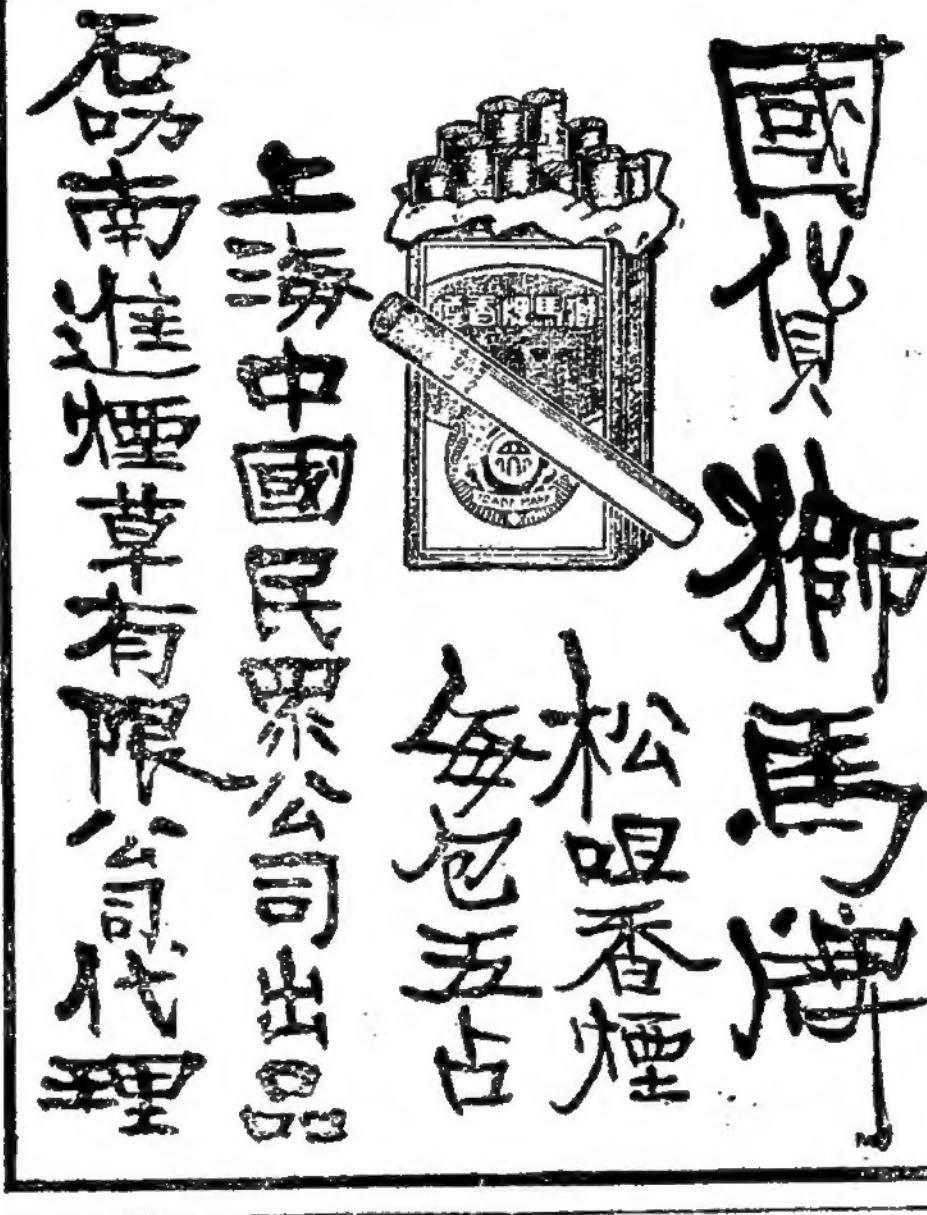 國貨獅馬牌
松咀香煙
每包五占
TRADE MARK
上海中國民眾公司出品
石叻南進煙草有限公司代理